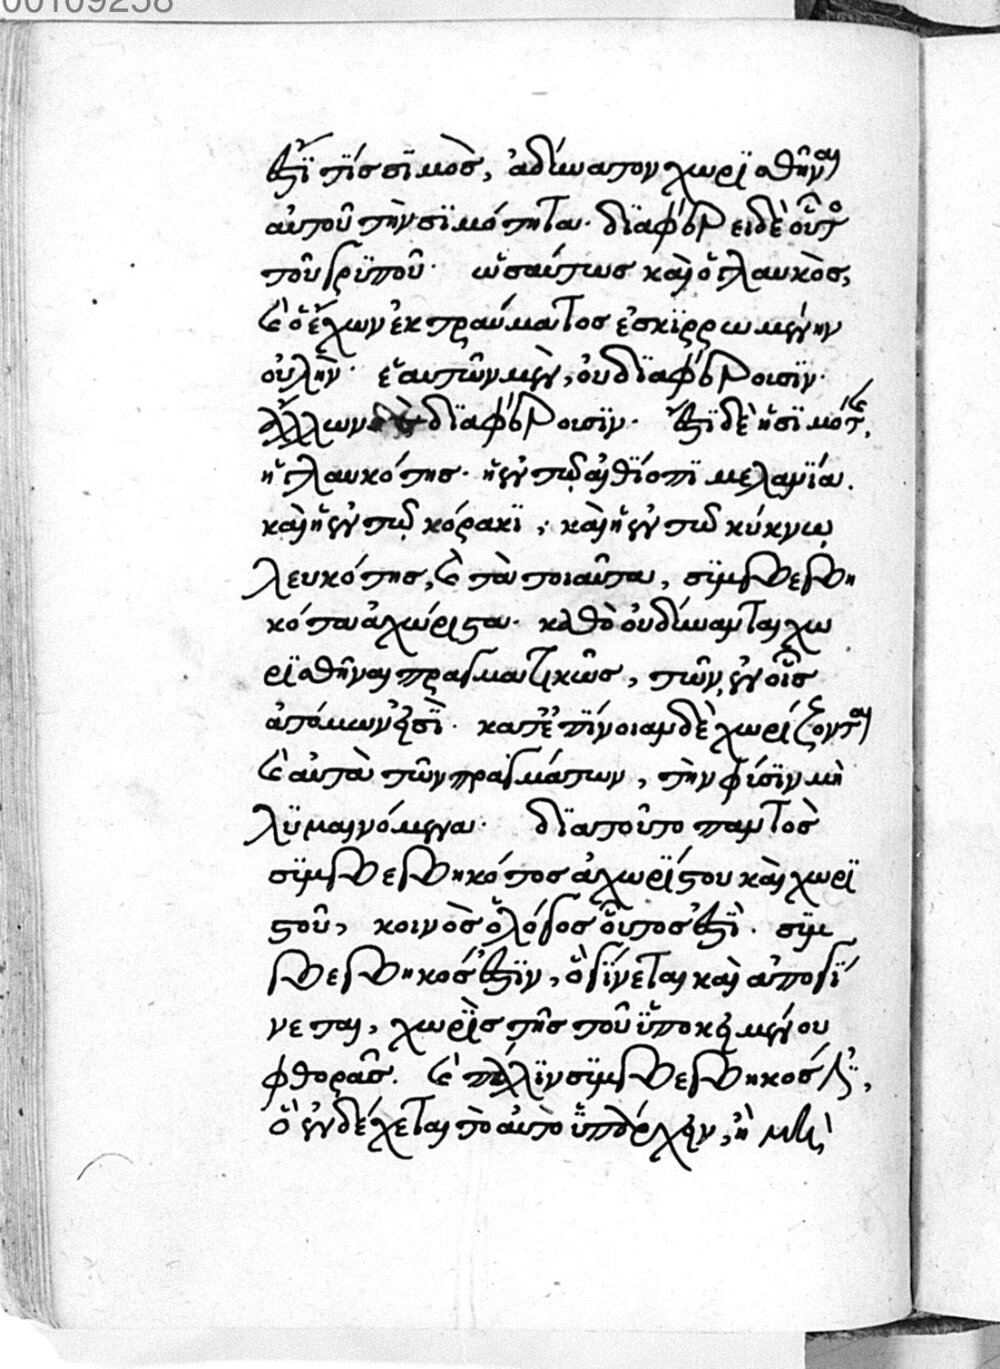 00109258
ἐστί τίς σιμὸς, ἀδύνατον χωρισθῆναι
αὐτοῦ τὴν σιμότητα· διαφέρει δὲ οὗτος
τοῦ γρυποῦ· ὡσαύτως καὶ ὁ γλαυκὸς,
καὶ ὁ ἔχων ἐκ τραύματος ἐσκιρρωμένην
οὐλὴν· ἑαυτῶν μὲν, οὐ διαφέρουσιν·
ἄλλων δὲ διαφέρουσιν· ἔστι δὲ ἡ σιμότης,
ἡ γλαυκότης· ἡ ἐν τῷ αἰθίοπι μελανία.
καὶ ἡ ἐν τῷ κόρακι, καὶ ἡ ἐν τῷ κύκνῳ
λευκότης, καὶ τὰ τοιαῦτα, συμβεβη
κότα ἀχώριστα· καθὸ οὐ δύνανται χω
ρισθῆναι πραγματικῶς, τῶν ἐν οἷς
ἀτόμων εἰσὶ· κατ' ἐπίνοιαν δὲ χωρίζονται
καὶ αὐτὰ τῶν πραγμάτων, τὴν φύσιν μὴ
λυμαινόμενα· διὰ τοῦτο παντὸς
συμβεβηκότος ἀχωρίστου καὶ χωρι
στοῦ, κοινὸς ὁ λόγος οὗτος ἐστὶ· συμ
βεβηκός ἐστιν, ὃ γίνεται καὶ ἀπογί
νεται, χωρὶς τῆς τοῦ ὑποκειμένου
φθορᾶς. καὶ πάλιν συμβεβηκός ἐστι,
ὃ ἐνδέχεται τὸ αὐτὸ ὑπάρχειν, ἢ μὴ